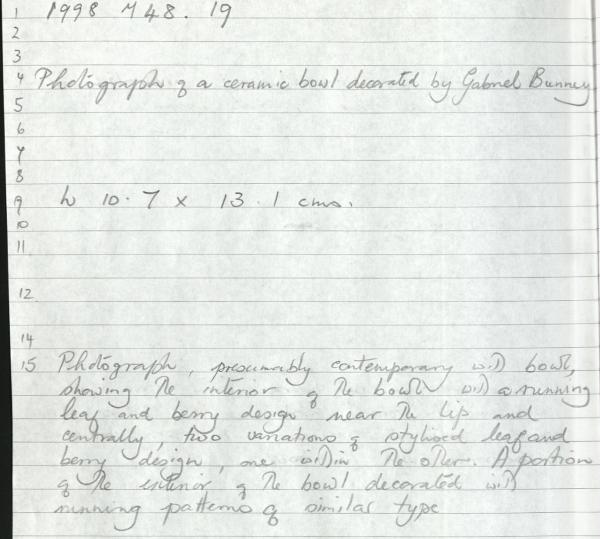 1 1998 M 48. 19
2
3
4 Photograph of a ceramic bowl decorated by Gabriel Bunney
5
6
7
8
9 h 10.7 x 13.1 cms.
10
11
12
14
15 Photograph, presumably contemporary with bowl,
showing the interior of the bowl with a running
leaf and berry design near the lip and
centrally, two variations of stylised leaf and
berry design, one within the other. A portion
of the interior of the bowl decorated with
running patterns of similar type